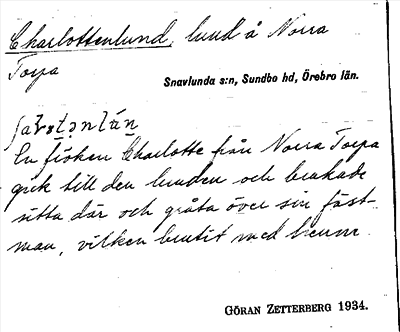 Charlottenlund, lund å Norra
Torpa
Snavlunda s:n, Sundbo hd, Örebro län.
En fröken Charlotte från Norra Torpa
gick till den lunden och brukade
sitta där och gråta över sin fäst-
man, vilken brutit med henne.
GÖRAN ZETTERBERG 1934.